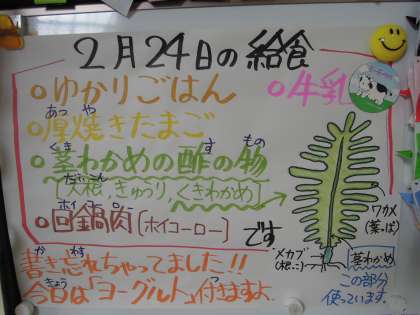 2月24日の給食
○ゆかりごはん
○牛乳
あつ や
○厚焼きたまご
くき す もの
○茎わかめの酢の物
だいこん
大根 きゅうり くきわかめ
ホイコーロー
○回鍋肉[ホイコーロー]です
か わす
書き忘れちゃってました!!
きょう つ
今日は「ヨーグルト」付きますよ
ワカメ
(葉っぱ)
メカブ
(根っこ)
茎わかめ
この部分
使っています。